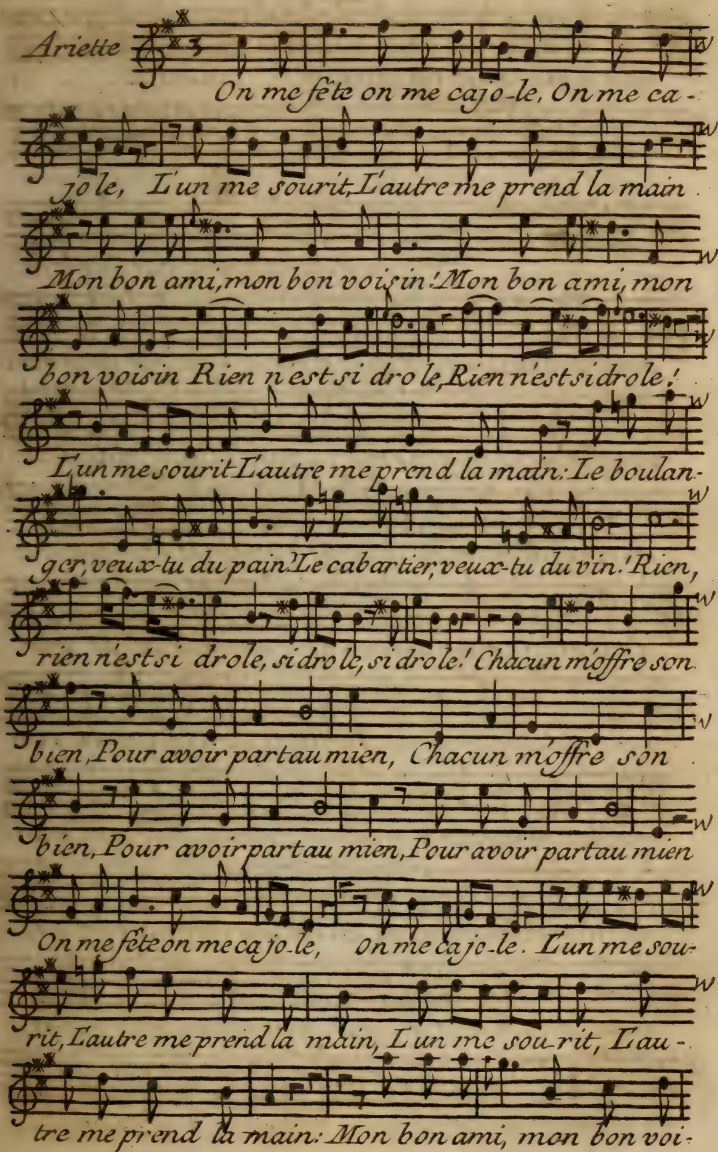 Ariette
On me fête on me cajo-le, On me ca-
jole, L'un me sourit, L'autre me prend la main
Mon bon ami, mon bon voisin! Mon bon ami, mon
bon voisin Rien n'est si drole, Rien n'est si drole!
L'un me sourit L'autre me prend la main: Le boulan-
ger, veux-tu du pain! Le cabartier, veux-tu du vin! Rien,
rien n'est si drole, si drole, si drole! Chacun m'offre son
bien, Pour avoir part au mien, Chacun m'offre son
bien, Pour avoir part au mien, Pour avoir part au mien
On me fête on me cajo-le, on me cajo-le. L'un me sou-
rit, L'autre me prend la main, L'un me sou-rit, L'au-
tre me prend la main: Mon bon ami, mon bon voi-